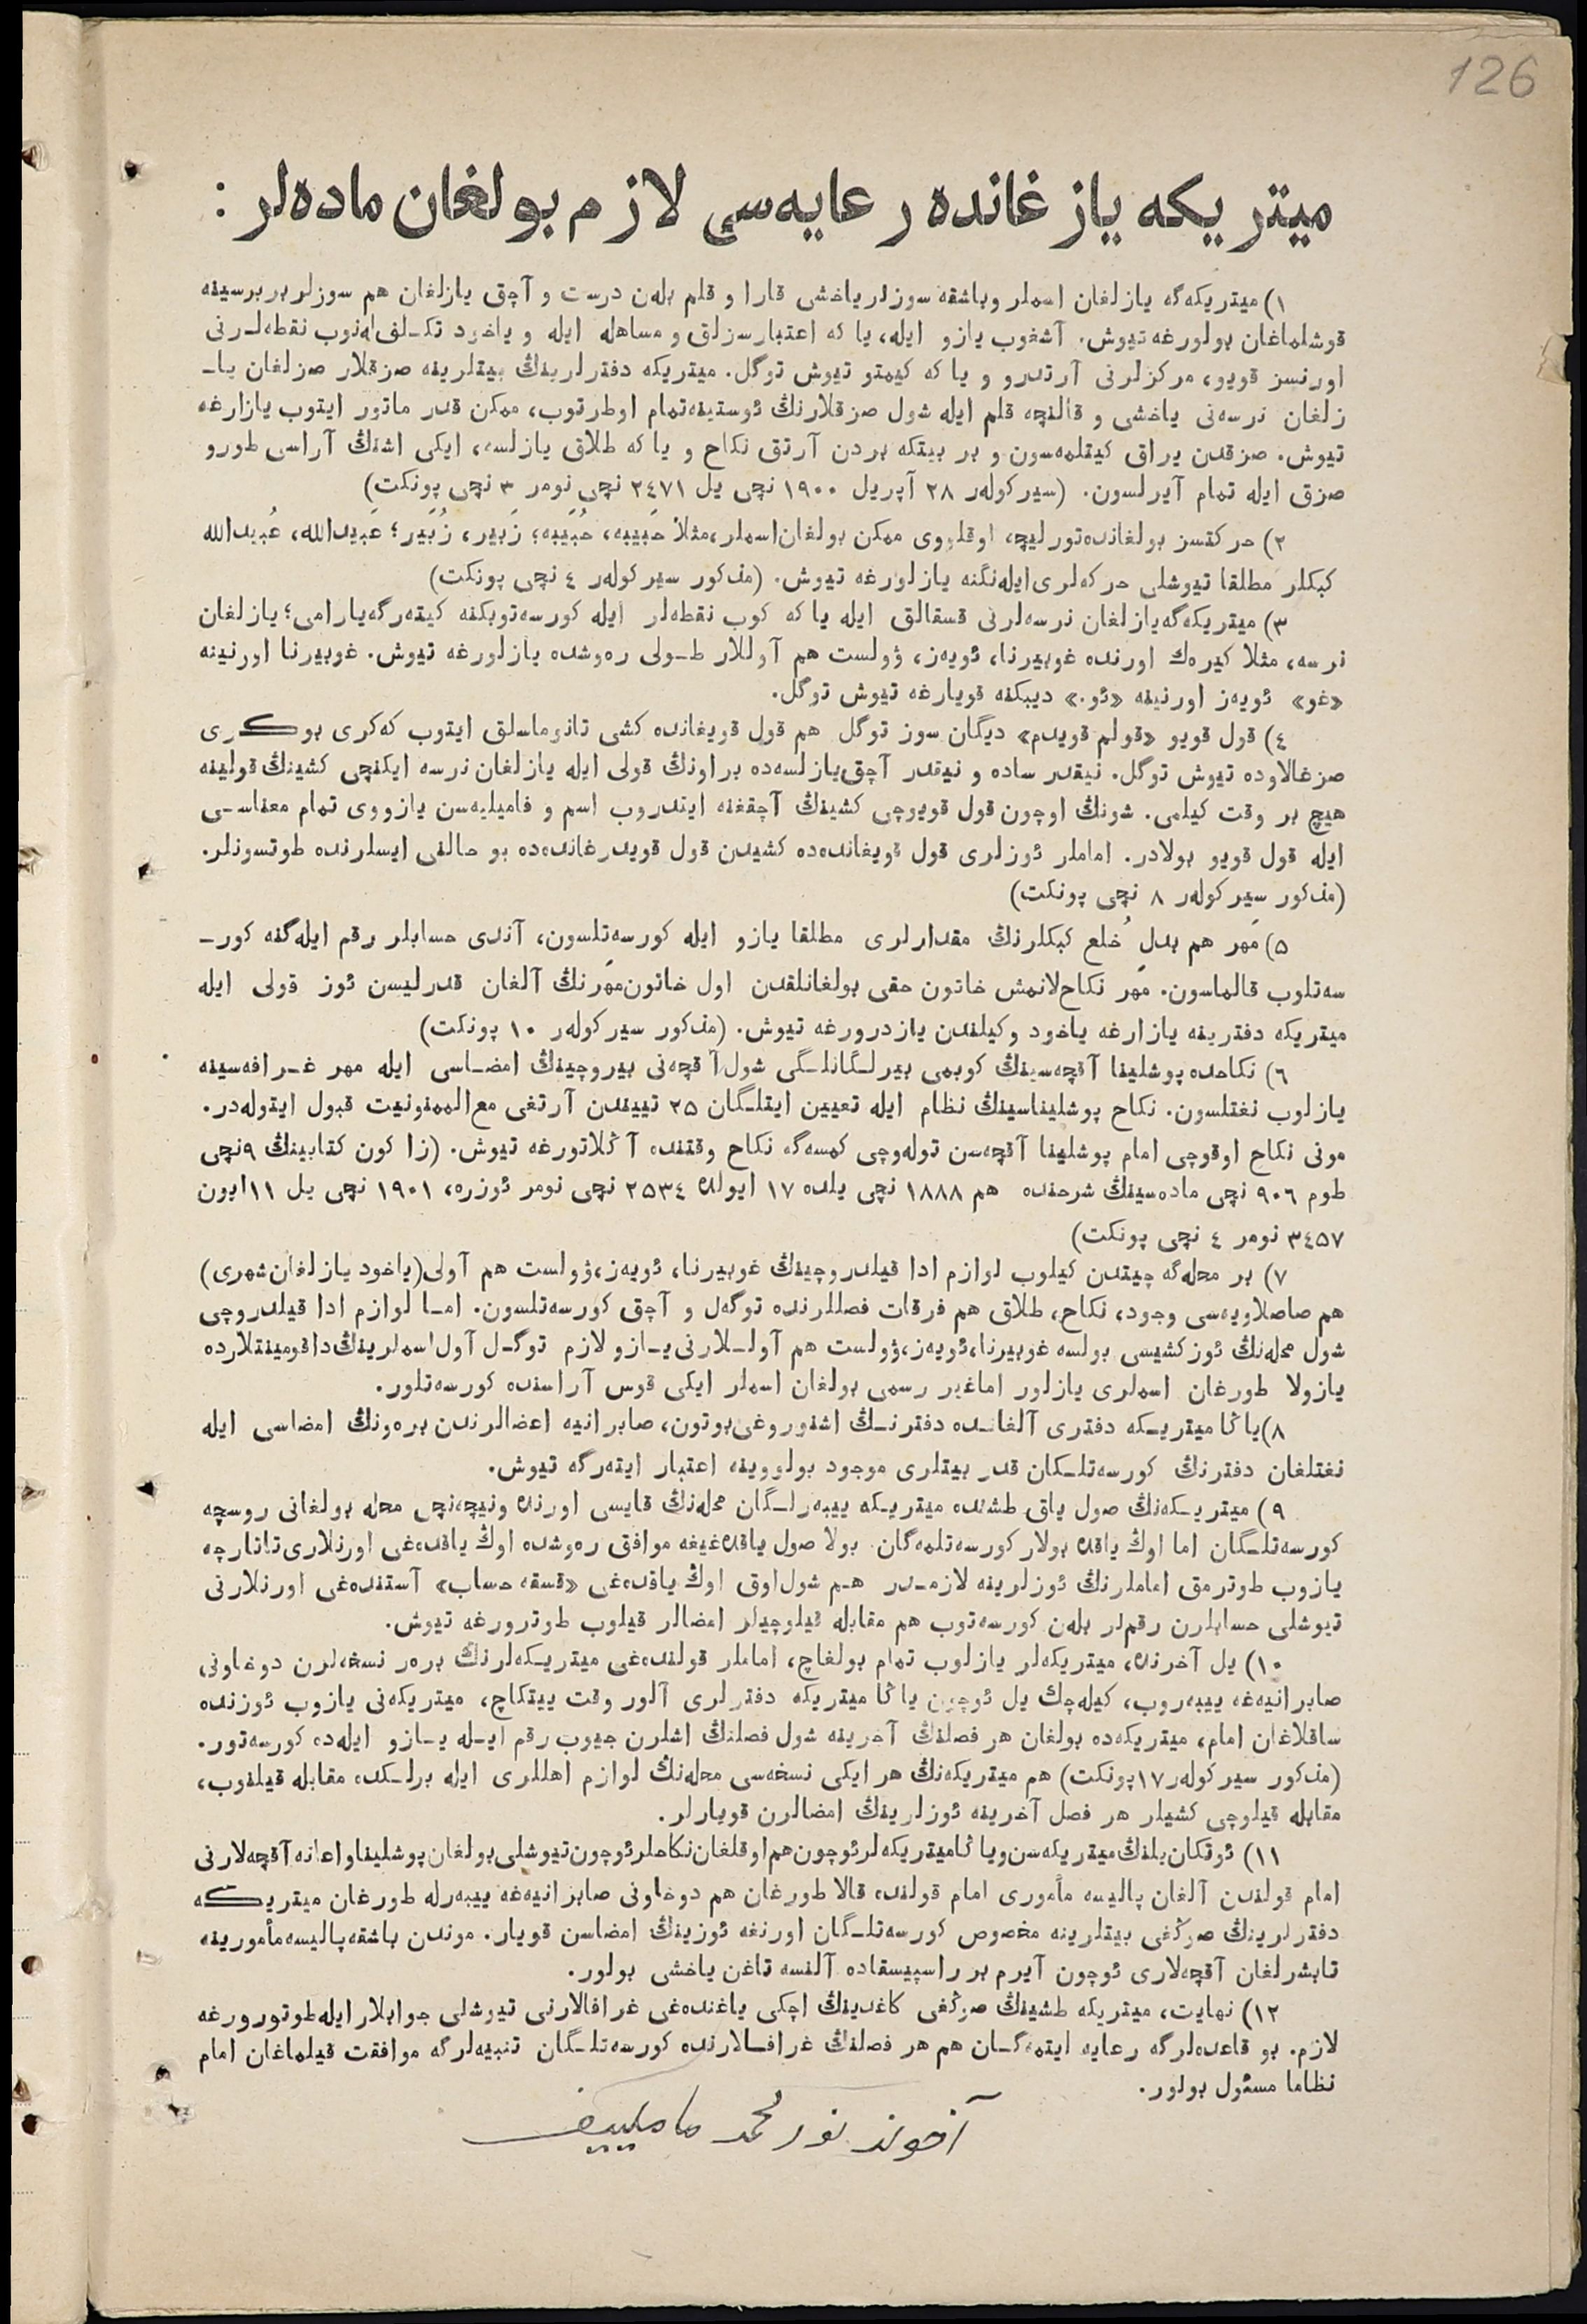 126
میتریکه یازغانده رعایه‌سی لازم بولغان ماده‌لر :
۱) میتریکه‌گه یازلغان اسملر وباشقه سوزلر یاخشی قارا و قلم بلەن درست و آچق یازلغان هم سوزلر بر برسینه
قوشلماغان بولورغه تیوش. آشغوب یازو ایله، یا که اعتبارسزلق و مساهله ایله و یاخود تکـلف‌له‌نوب نقطه‌لـرنی
اورنسز قویو، مرکزلرنی آرتدرو و یا که کیمتو تیوش توگل. میتریکه دفترلرینڭ بیتلرینه صزقلار صزلغان یا۔
زلغان نرسه‌نی یاخشی و قالنچه قلم ایله شول صزقلارنڭ ئوستینه تمام اوطرتوب، ممکن قدر ماتور ایتوب یازارغه
تیوش. صزقدن یراق کیتلمه‌سون و بر بیتکه بردن آرتق نکاح و یا که طلاق یازلسه، ایکی اشنڭ آراسی طورو
صزق ایله تمام آیرلسون. (سیرکولەر ۲۸ آپریل ۱۹۰۰ نچی یل ۲٤۷۱ نچی نومر ۳ نچی پونکت)
۲) حرکتسز بولغانده تورلیچه اوقلووی ممکن بولغان اسملر، مثلاً حَبیبه، حُبَیبه؛ زَبیر، زُبَیر؛ عَبیدالله، عُبیدالله
کبکلر مطلقا تیوشلی حرکه‌لری ایله‌نگنه یازلورغه تیوش. (مذکور سیرکولەر ٤ نچی پونکت)
۳) میتریکه‌گه یازلغان نرسه‌لرنی قسقالق ایله یا که کوب نقطه‌لر ایله کورسه‌توبکنه کیته‌رگه یارامی؛ یازلغان
نرسه، مثلا کیره‌ك اورنده غوبیرنا، ئویه‌ز، ۋولست هم آوللار طـولی ره‌وشده یازلورغه تیوش. غوبیرنا اورنینه
«غو» ئویه‌ز اورنینه «ئو.» دیبکنه قویارغه تیوش توگل.
٤) قول قویو «قولم قویدم» دیگان سوز توگل هم قول قویغانده کشی تانوماسلق ایتوب که‌کری بوکـری
صزغالاوده تیوش توگل. نیقدر ساده و نیقدر آچق یازلسه‌ده براونڭ قولی ایله یازلغان نرسه ایکنچی کشینڭ قولینه
هیچ بر وقت کیلمی. شونڭ اوچون قول قویوچی کشینڭ آچقغنه ایتدروب اسم و فامیلیه‌سن یازووی تمام معناسـی
ایله قول قویو بولادر. اماملر ئوزلری قول قویغانده‌ده کشیدن قول قویدرغانده‌ده بو حالنی ایسلرنده طوتسونلر.
(مذکور سیرکولەر ۸ نچی پونکت)
۵) مَهر هم بدل خُلع کبکلرنڭ مقدارلری مطلقا یازو ایله کورسه‌تلسون، آندی حسابلر رقم ایله‌گنه کور۔
سه‌تلوب قالماسون. مَهر نکاح‌لانمش خاتون حقی بولغانلقدن اول خاتون مَهرنڭ آلغان قدرلیسن ئوز قولی ایله
میتریکه دفترینه یازارغه یاخود وکیلندن یازدرورغه تیوش. (مذکور سیرکولەر ۱۰ پونکت)
٦) نکاحده پوشلینا آقچه‌سینڭ کوبمی بیرلـگانلـگی شول آقچه‌نی بیروچینڭ امضـاسی ایله مهر غـرافه‌سینه
یازلوب نغتلسون. نکاح پوشلیناسینڭ نظام ایله تعیین ایتلـگان ۲۵ تییندن آرتغی مع‌الممنونیت قبول ایتوله‌در.
مونی نکاح اوقوچی امام پوشلینا آقچه‌سن توله‌وچی کمسه‌گه نکاح وقتنده آڭلاتورغه تیوش. (زاکون کتابینڭ ۹نچی
طوم ۹۰٦ نچی ماده‌سینڭ شرحنده هم ۱۸۸۸ نچی یلده ۱۷ ایولده ۲۵۳٤ نچی نومر ئوزره، ۱۹۰۱ نچی یل ۱۱ ایون
۳٤۵۷ نومر ٤ نچی پونکت)
۷) بر محله‌گه چیتدن کیلوب لوازم ادا قیلدروچینڭ غوبیرنا، ئویه‌ز، ۋولست هم آولی (یاخود یازلغان شهری)
هم صاصلاویه‌سی وجود، نکاح، طلاق هم فرقات فصللرنده توگه‌ل و آچق کورسه‌تلسون. امـا لوازم ادا قیلدروچی
شول محله‌نڭ ئوز کشیسی بولسه غوبیرنا، ئویه‌ز، ۋولست هم آولـلارنی یـازو لازم توگـل آول اسملرینڭ داقومینتلارده
یازولا طورغان اسملری یازلور اماغیر رسمی بولغان اسملر ایکی قوس آراسنده کورسه‌تلور.
۸) یاڭا میتریـکه دفتری آلغانده دفترنـڭ اشنوروغی بوتون، صابرانیه اعضالرندن بره‌ونڭ امضاسی ایله
نغتلغان دفترنڭ کورسه‌تلـکان قدر بیتلری موجود بولووینه اعتبار ایته‌رگه تیوش.
۹) میتریـکه‌نڭ صول یاق طشنده میتریـکه ییبه‌رلـگان محله‌نڭ قایسی اورنده ونیچه‌نچی محله بولغانی روسچه
کورسه‌تلـگان اما اوڭ یاقده بولار کورسه‌تلمه‌گان. بولا صول یاقده‌غیغه موافق ره‌وشده اوڭ یاقده‌غی اورنلاری تاتارچه
یازوب طوترمق اماملرنڭ ئوزلرینه لازمـدر هـم شول‌اوق اوڭ یاقده‌غی «قسقه حساب» آستنده‌غی اورنلارنی
تیوشلی حسابلرن رقم‌لر بلەن کورسه‌توب هم مقابله قیلوچیلر امضالر قیلوب طوترورغه تیوش.
۱۰) یل آخرنده، میتریکه‌لر یازلوب تمام بولغاچ، اماملر قولنده‌غی میتریـکه‌لرنڭ بره‌ر نسخه‌لرن دوخاونی
صابرانیه‌غه ییبه‌روب، کیله‌چك یل ئوچون یاڭا میتریکه دفترلری آلور وقت ییتکاچ، میتریکه‌نی یازوب ئوزنده
ساقلاغان امام، میتریکه‌ده بولغان هر فصلنڭ آخرینه شول فصلنڭ اشلرن جیوب رقم ایـله یـازو ایله‌ده کورسه‌تور.
(مذکور سیرکولەر ۱۷ پونکت) هم میتریکه‌نڭ هر ایکی نسخه‌سی محله‌نڭ لوازم اهللری ایله برلـکده مقابله قیلنوب،
مقابله قیلوچی کشیلر هر فصل آخرینه ئوزلرینڭ امضالرن قویارلر.
۱۱) ئوتکان یلنڭ میتریکه‌سن ویاڭا میتریکه‌لر ئوچون هم اوقلغان نکاحلر ئوچون تیوشلی بولغان پوشلینا واعانه آقچه‌لارنی
امام قولندن آلغان پالیسه مأموری امام قولنده قالا طورغان هم دوخاونی صابرانیه‌غه ییبه‌رله طورغان میتریکه
دفترلرینڭ صوڭغی بیتلرینه مخصوص کورسه‌تلـگان اورنغه ئوزینڭ امضاسن قویار. موندن باشقه پالیسه مأمورینه
تابشرلغان آقچه‌لاری ئوچون آیرم بر راسپیسقاده آلنسه تاغن یاخشی بولور.
۱۲) نهایت، میتریکه طشینڭ صوڭغی کاغدینڭ اچکی یاغنده‌غی غرافالارنی تیوشلی جوابلار ایله طوتورورغه
لازم. بو قاعده‌لرگه رعایه ایتمه‌گـان هم هر فصلنڭ غرافـالارنده کورسه‌تلـگان تنبیه‌لرگه موافقت قیلماغان امام
نظاما مسئول بولور.
آخوند نورمحمد ماملییف